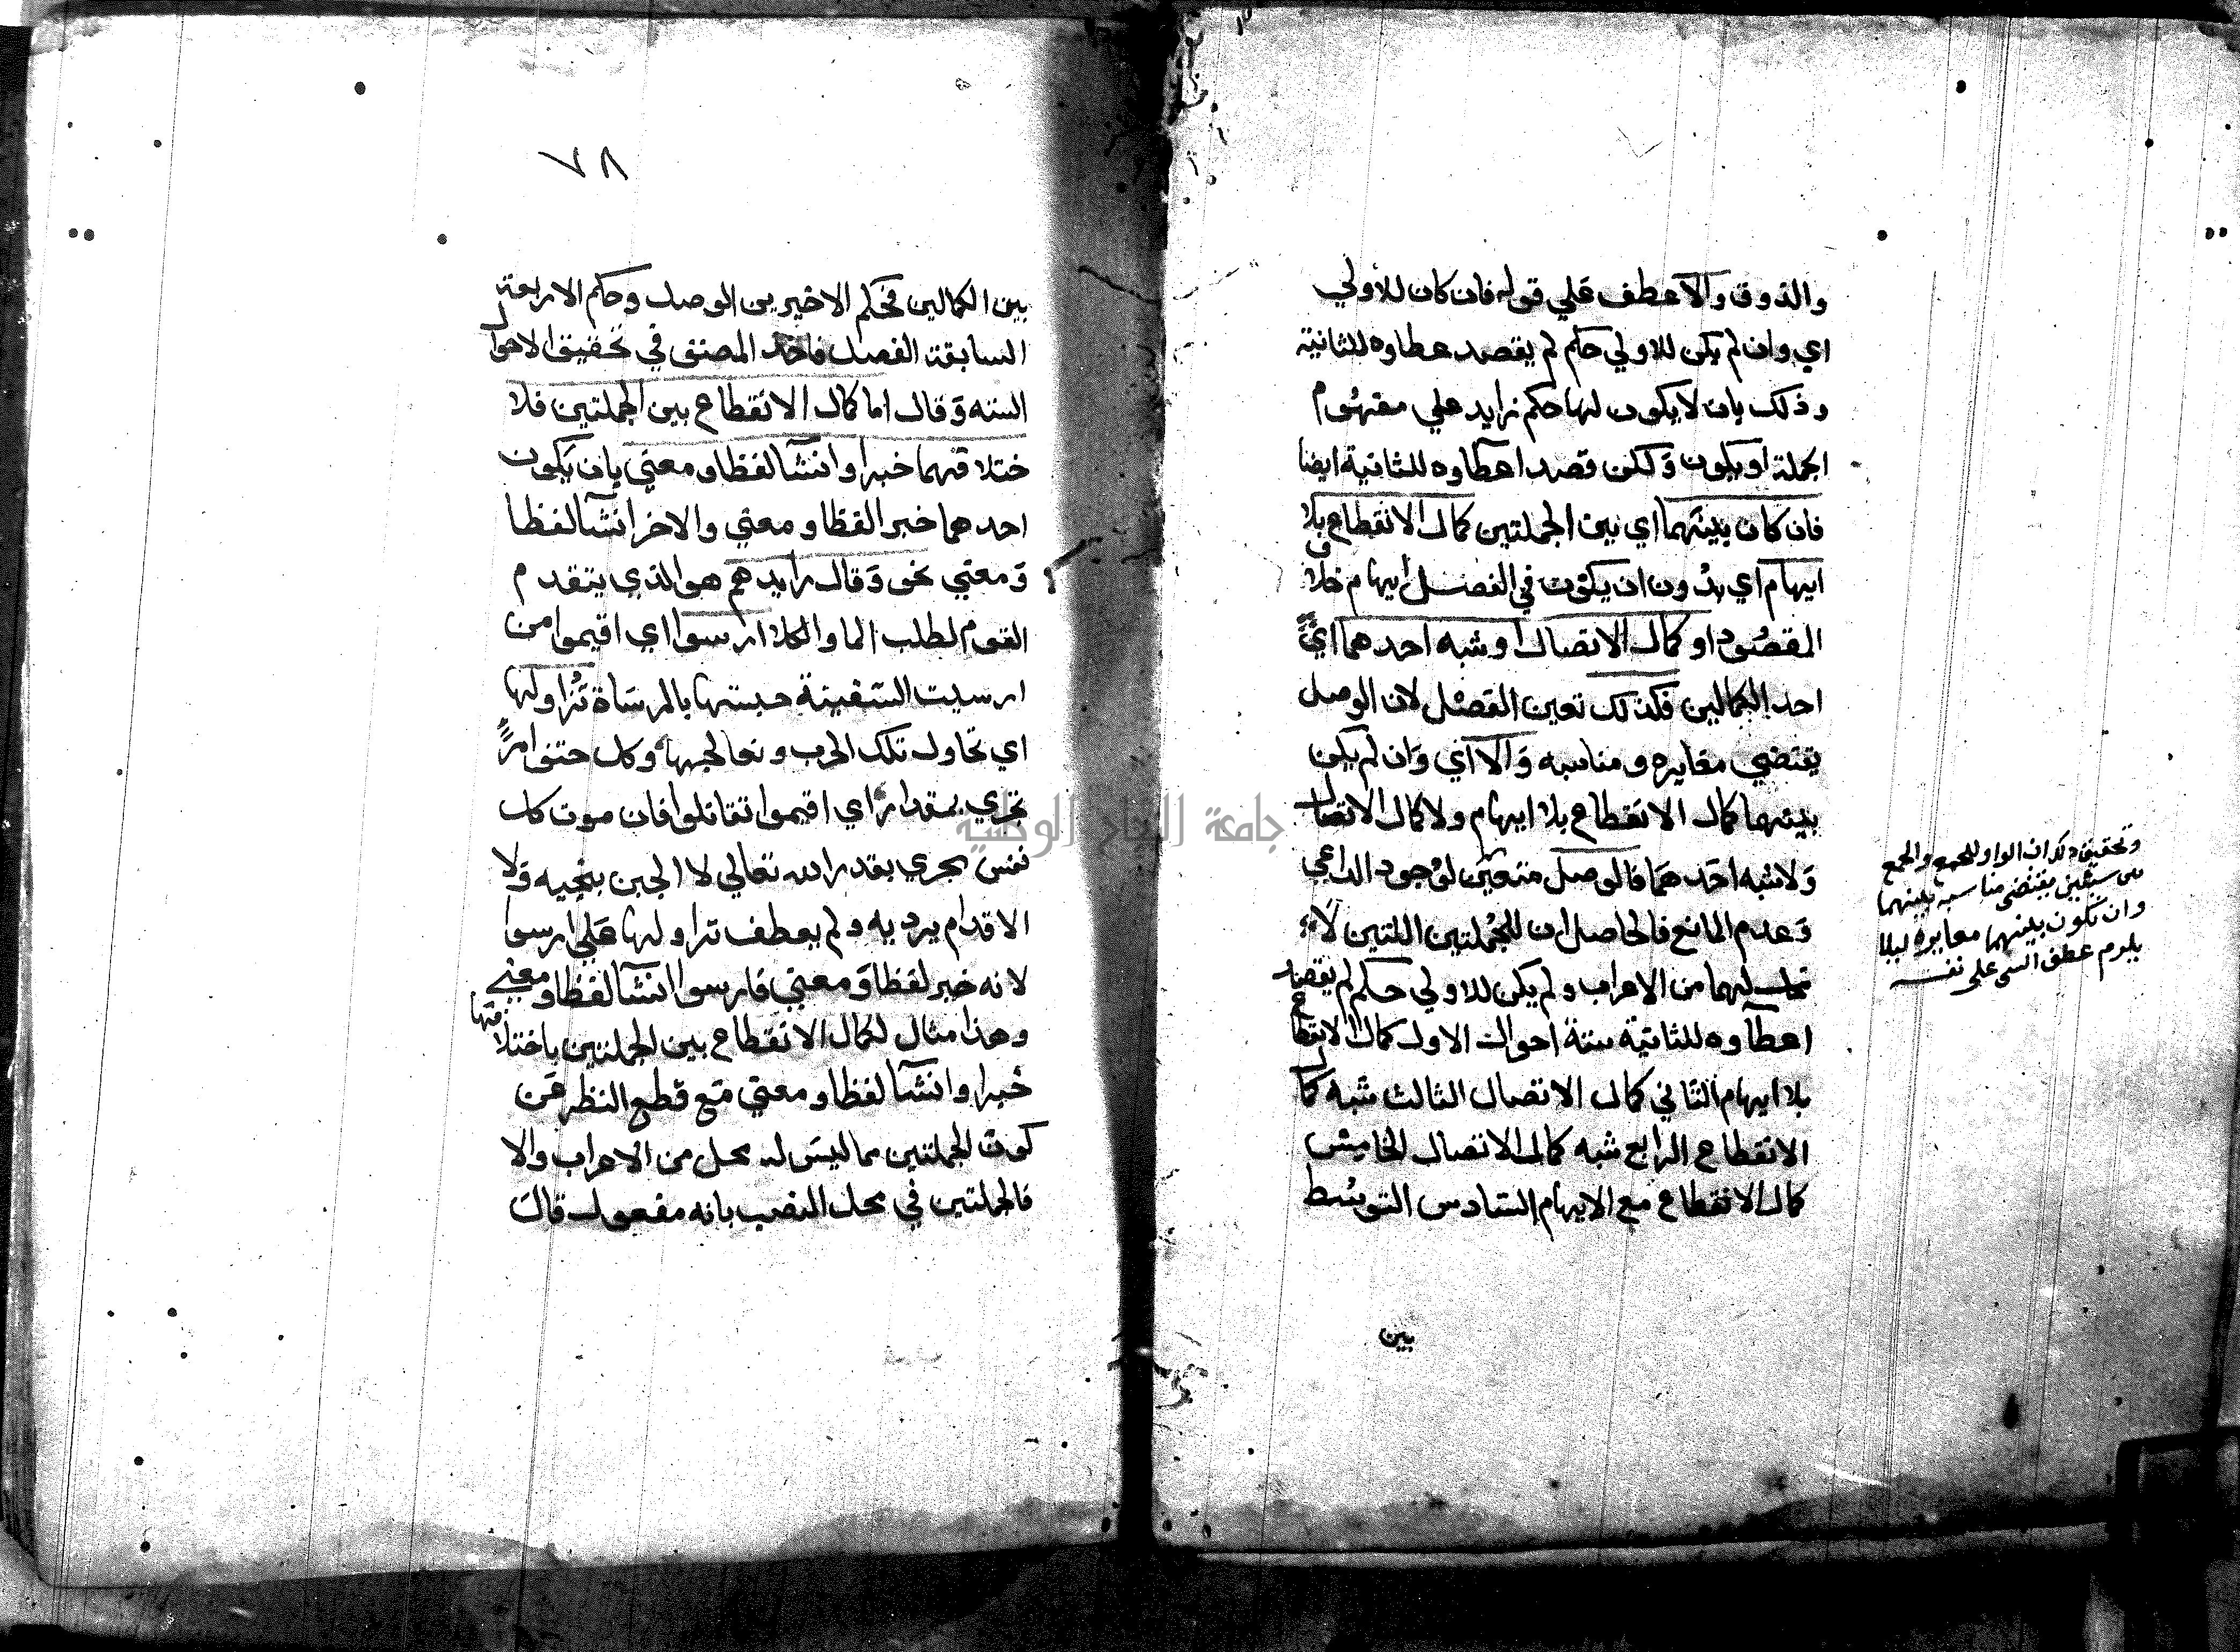 والذوق والا عطف علي قوله فان كان للاولي
اي وان لم يكن للاولي حكم لم يقصد عطاوه للثانية
وذلك بان لا يكون لها حكم زايد علي مفهوم
الجملة او يكون ولكن قصد اعطاوه للثانية ايضا
فان كان بينهما اي بين الجملتين كمال الانقطاع بلا
ايهام اي بدون ان يكون في الفصل ايهام خلاف
المقصود او كمال الاتصال او شبه احدهما اي
احد الكمالين فكذلك تعين الفصل لان الوصل
يقتضي مغايره ومناسبه والا اي وان لم يكن
بينهما كمال الانقطاع بلا ايهام ولا كمال الاتصال
ولا شبه احدهما فالوصل متعين لوجود الداعي
وعدم المانع فالحاصل ان للجملتين اللتين لا
محل لهما من الاعراب ولم يكن للاولي حكم لم يقصد
اعطآوه للثانية ستة احوال الاول كمال الانقطاع
بلا ايهام الثاني كمال الاتصال الثالث شبه كمال
الانقطاع الرابع شبه كمال الاتصال الخامس
كمال الانقطاع مع الايهام السادس التوسط
بين
وتحقيق ذلك ان الواو للجمع والجمع
بين شيئين يقتضي مناسبه بينهما
وان تكون بينهما مغايره ليلا
يلزم عطف الشي على نفسه
٧٨
بين الكمالين فحكم الاخيرين الوصل وحكم الاربعة
السابقة الفصل فاخذ المصنف في تحقيق الاحوال
الستة وقال اما كمال الانقطاع بين الجملتين فلا
ختلافهما خبرا وانشآ لفظا ومعني بان يكون
احدهما خبرا لفظا ومعني والاخر انشآ لفظا
ومعني نحو وقال رايدهم هو الذي يتقدم
القوم لطلب الما والكلا ارسوا اي اقيموا من
ارسيت السفينة حبستها بالمرساة نزاولها
اي نحاول تلك الحرب ونعالجها وكل حتف امرئ
تجري بمقدار اي اقيموا نقاتل فان موت كل
نفس يجري بقدر الله تعالي لا الجبن ينجيه ولا
الاقدام يرديه ولم يعطف نزاولها علي ارسوا
لانه خبر لفظا ومعني فارسوا انشآ لفظا ومعني
وهذا مثال لكمال الانقطاع بين الجملتين باختلافهما
خبرا وانشآ لفظا ومعني مع قطع النظر عن
كون الجملتين مما ليس له محل من الاعراب والا
فالجملتين في محل النصب بانه مفعول قال
جامعة النجاح الوطنية